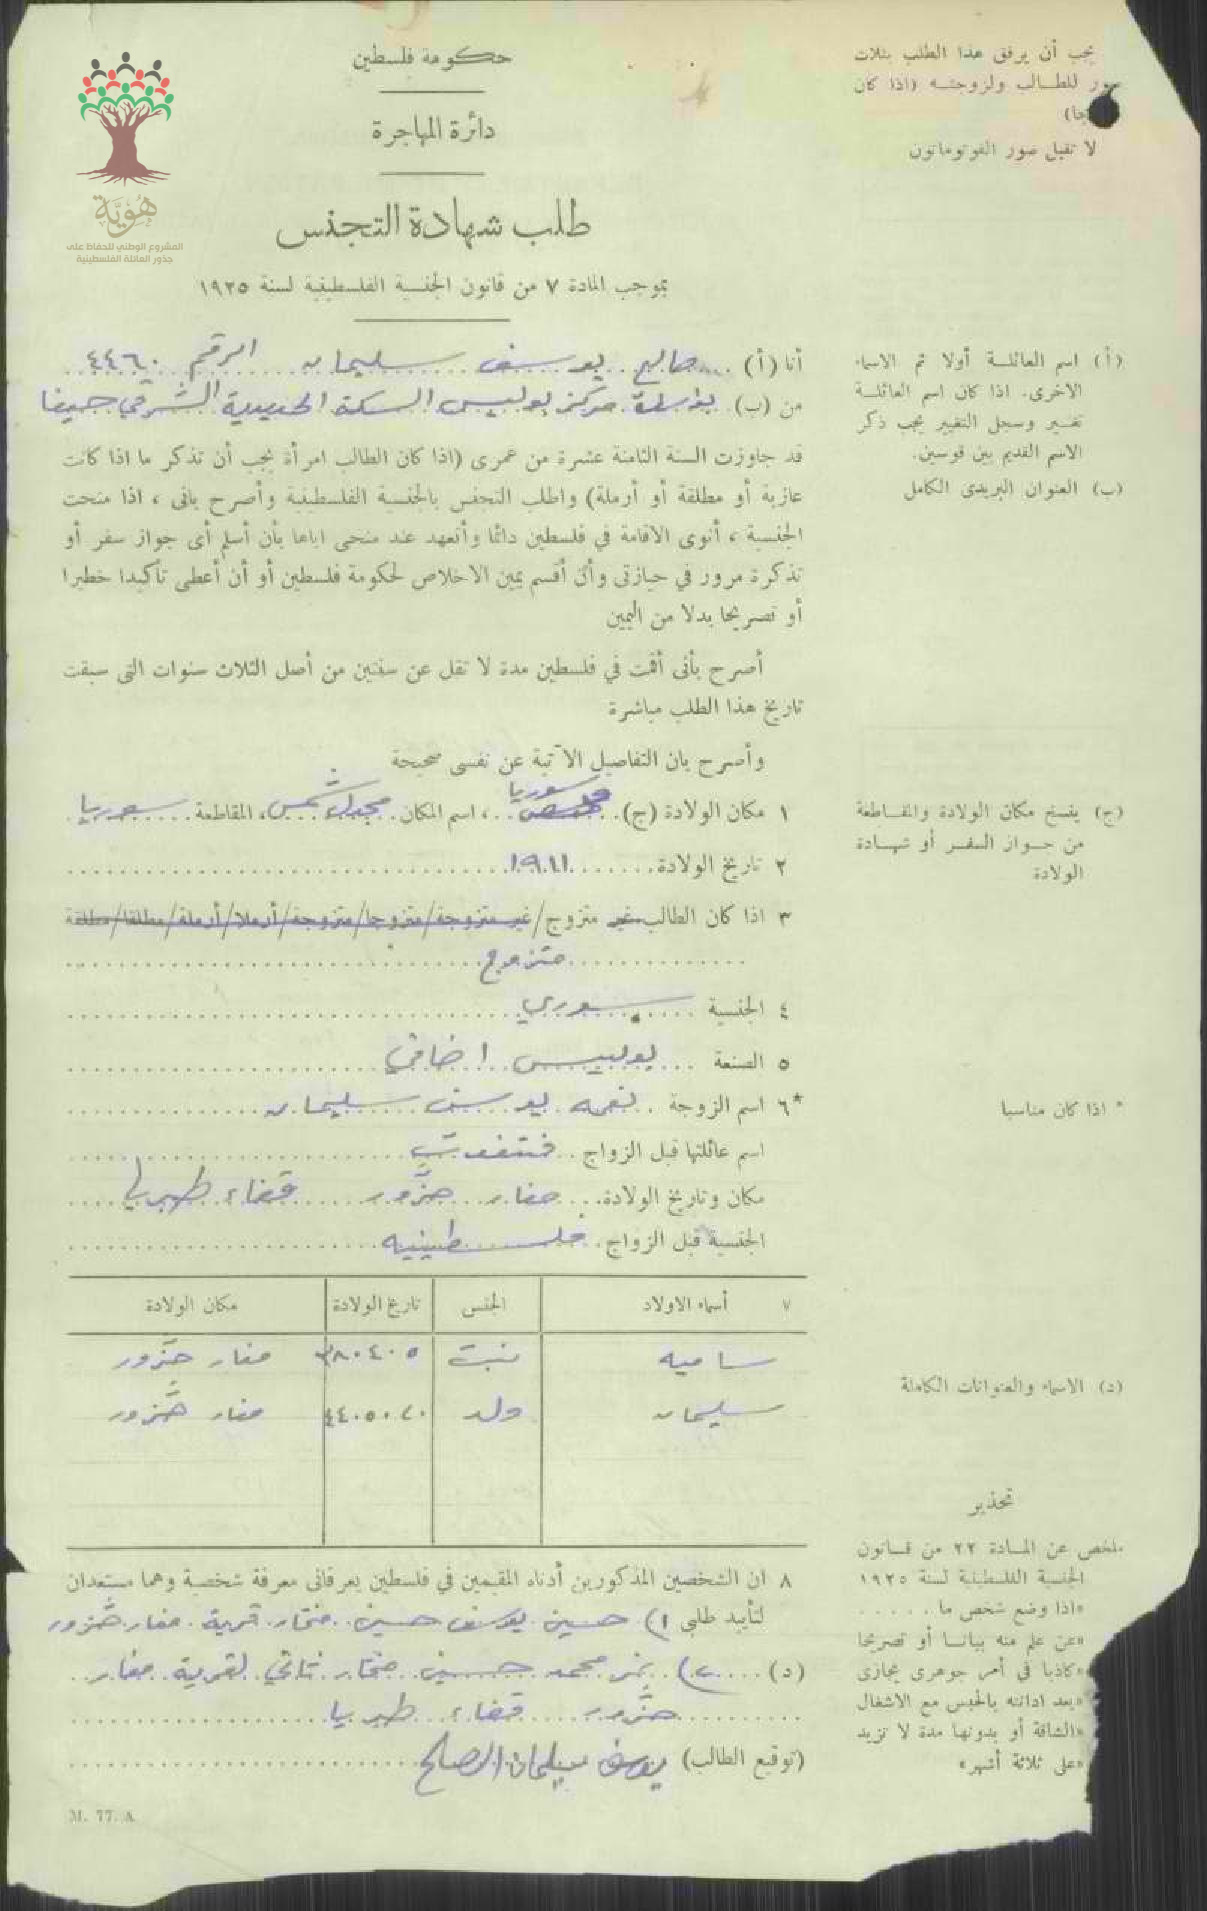 هُويَّة
المشروع الوطني للحفاظ على
جذور العائلة الفلسطينية
حكومة فلسطين
دائرة المهاجرة
طلب شهادة التجنس
بموجب المادة ٧ من قانون الجنسية الفلسطينية لسنة ١٩٢٥
يجب أن يرفق هذا الطلب بثلاث
صور للطالب ولزوجته (اذا كان
لا تقبل صور الفوتوماتون
أنا (أ) صالح يوسف سليمان الرقم ٤٤٦٠
من (ب) بواسطة مركز بوليس السكة الحديدية الشرقي حيفا
قد جاوزت السنة الثامنة عشرة من عمرى (اذا كان الطالب امرأة يجب أن تذكر ما اذا كانت
عازبة أو مطلقة أو أرملة) واطلب التجنس بالجنسية الفلسطينية وأصرح بانى ، اذا منحت
الجنسية ، أنوى الاقامة في فلسطين دائما وأتعهد عند منحى اياها بأن أسلم أى جواز سفر أو
تذكرة مرور في حيازتى وأن أقسم يمين الاخلاص لحكومة فلسطين أو أن أعطى تأكيدا خطيرا
أو تصريحا بدلا من اليمين
أصرح بأنى أقمت في فلسطين مدة لا تقل عن سنتين من أصل الثلاث سنوات التى سبقت
تاريخ هذا الطلب مباشرة
وأصرح بان التفاصيل الآتية عن نفسى صحيحة
١ مكان الولادة (ج) سوريا ، اسم المكان مجدل شمس ، المقاطعة سوريا
٢ تاريخ الولادة ١٩١١
٣ اذا كان الطالب غير متزوج/غير متزوجة/متزوجا/متزوجة/أرملا/أرملة/مطلقا/مطلقة
متزوج
٤ الجنسية سوري
٥ الصنعة بوليس اضافي
*٦ اسم الزوجة نعمه يوسف سليمان
اسم عائلتها قبل الزواج
مكان وتاريخ الولادة مغار حزّور قضاء طبريا
الجنسية قبل الزواج فلسطينيه
٧ أسماء الاولاد الجنس تاريخ الولادة مكان الولادة
ساميه بنت ٣٨٠٤٠٥ مغار حزّور
سليمان ولد ٤٤٠٥٠٢٠ مغار حزّور
٨ ان الشخصين المذكورين أدناه المقيمين في فلسطين يعرفانى معرفة شخصية وهما مستعدان
لتأييد طلبى ١) حسين يوسف حسين مختار قرية مغار حزور
(د) ٢) محمد حسين مختار ثاني لقرية مغار
حزّور قضاء طبريا
(توقيع الطالب) يوسف سليمان الصالح
M. 77. A
(أ) اسم العائلة أولا ثم الاسماء
الاخرى. اذا كان اسم العائلة
تغير وسجل التغيير يجب ذكر
الاسم القديم بين قوسين.
(ب) العنوان البريدى الكامل
(ج) ينسخ مكان الولادة والمقاطعة
من جواز السفر أو شهادة
الولادة
* اذا كان مناسبا
(د) الاسماء والعنوانات الكاملة
تحذير
ملخص عن المادة ٢٢ من قانون
الجنسية الفلسطينية لسنة ١٩٢٥
«اذا وضع شخص ما . . . . .
«عن علم منه بيانا أو تصريحا
«كاذبا في أمر جوهرى يجازى
«بعد ادانته بالحبس مع الاشغال
«الشاقة أو بدونها مدة لا تزيد
«على ثلاثة أشهر»